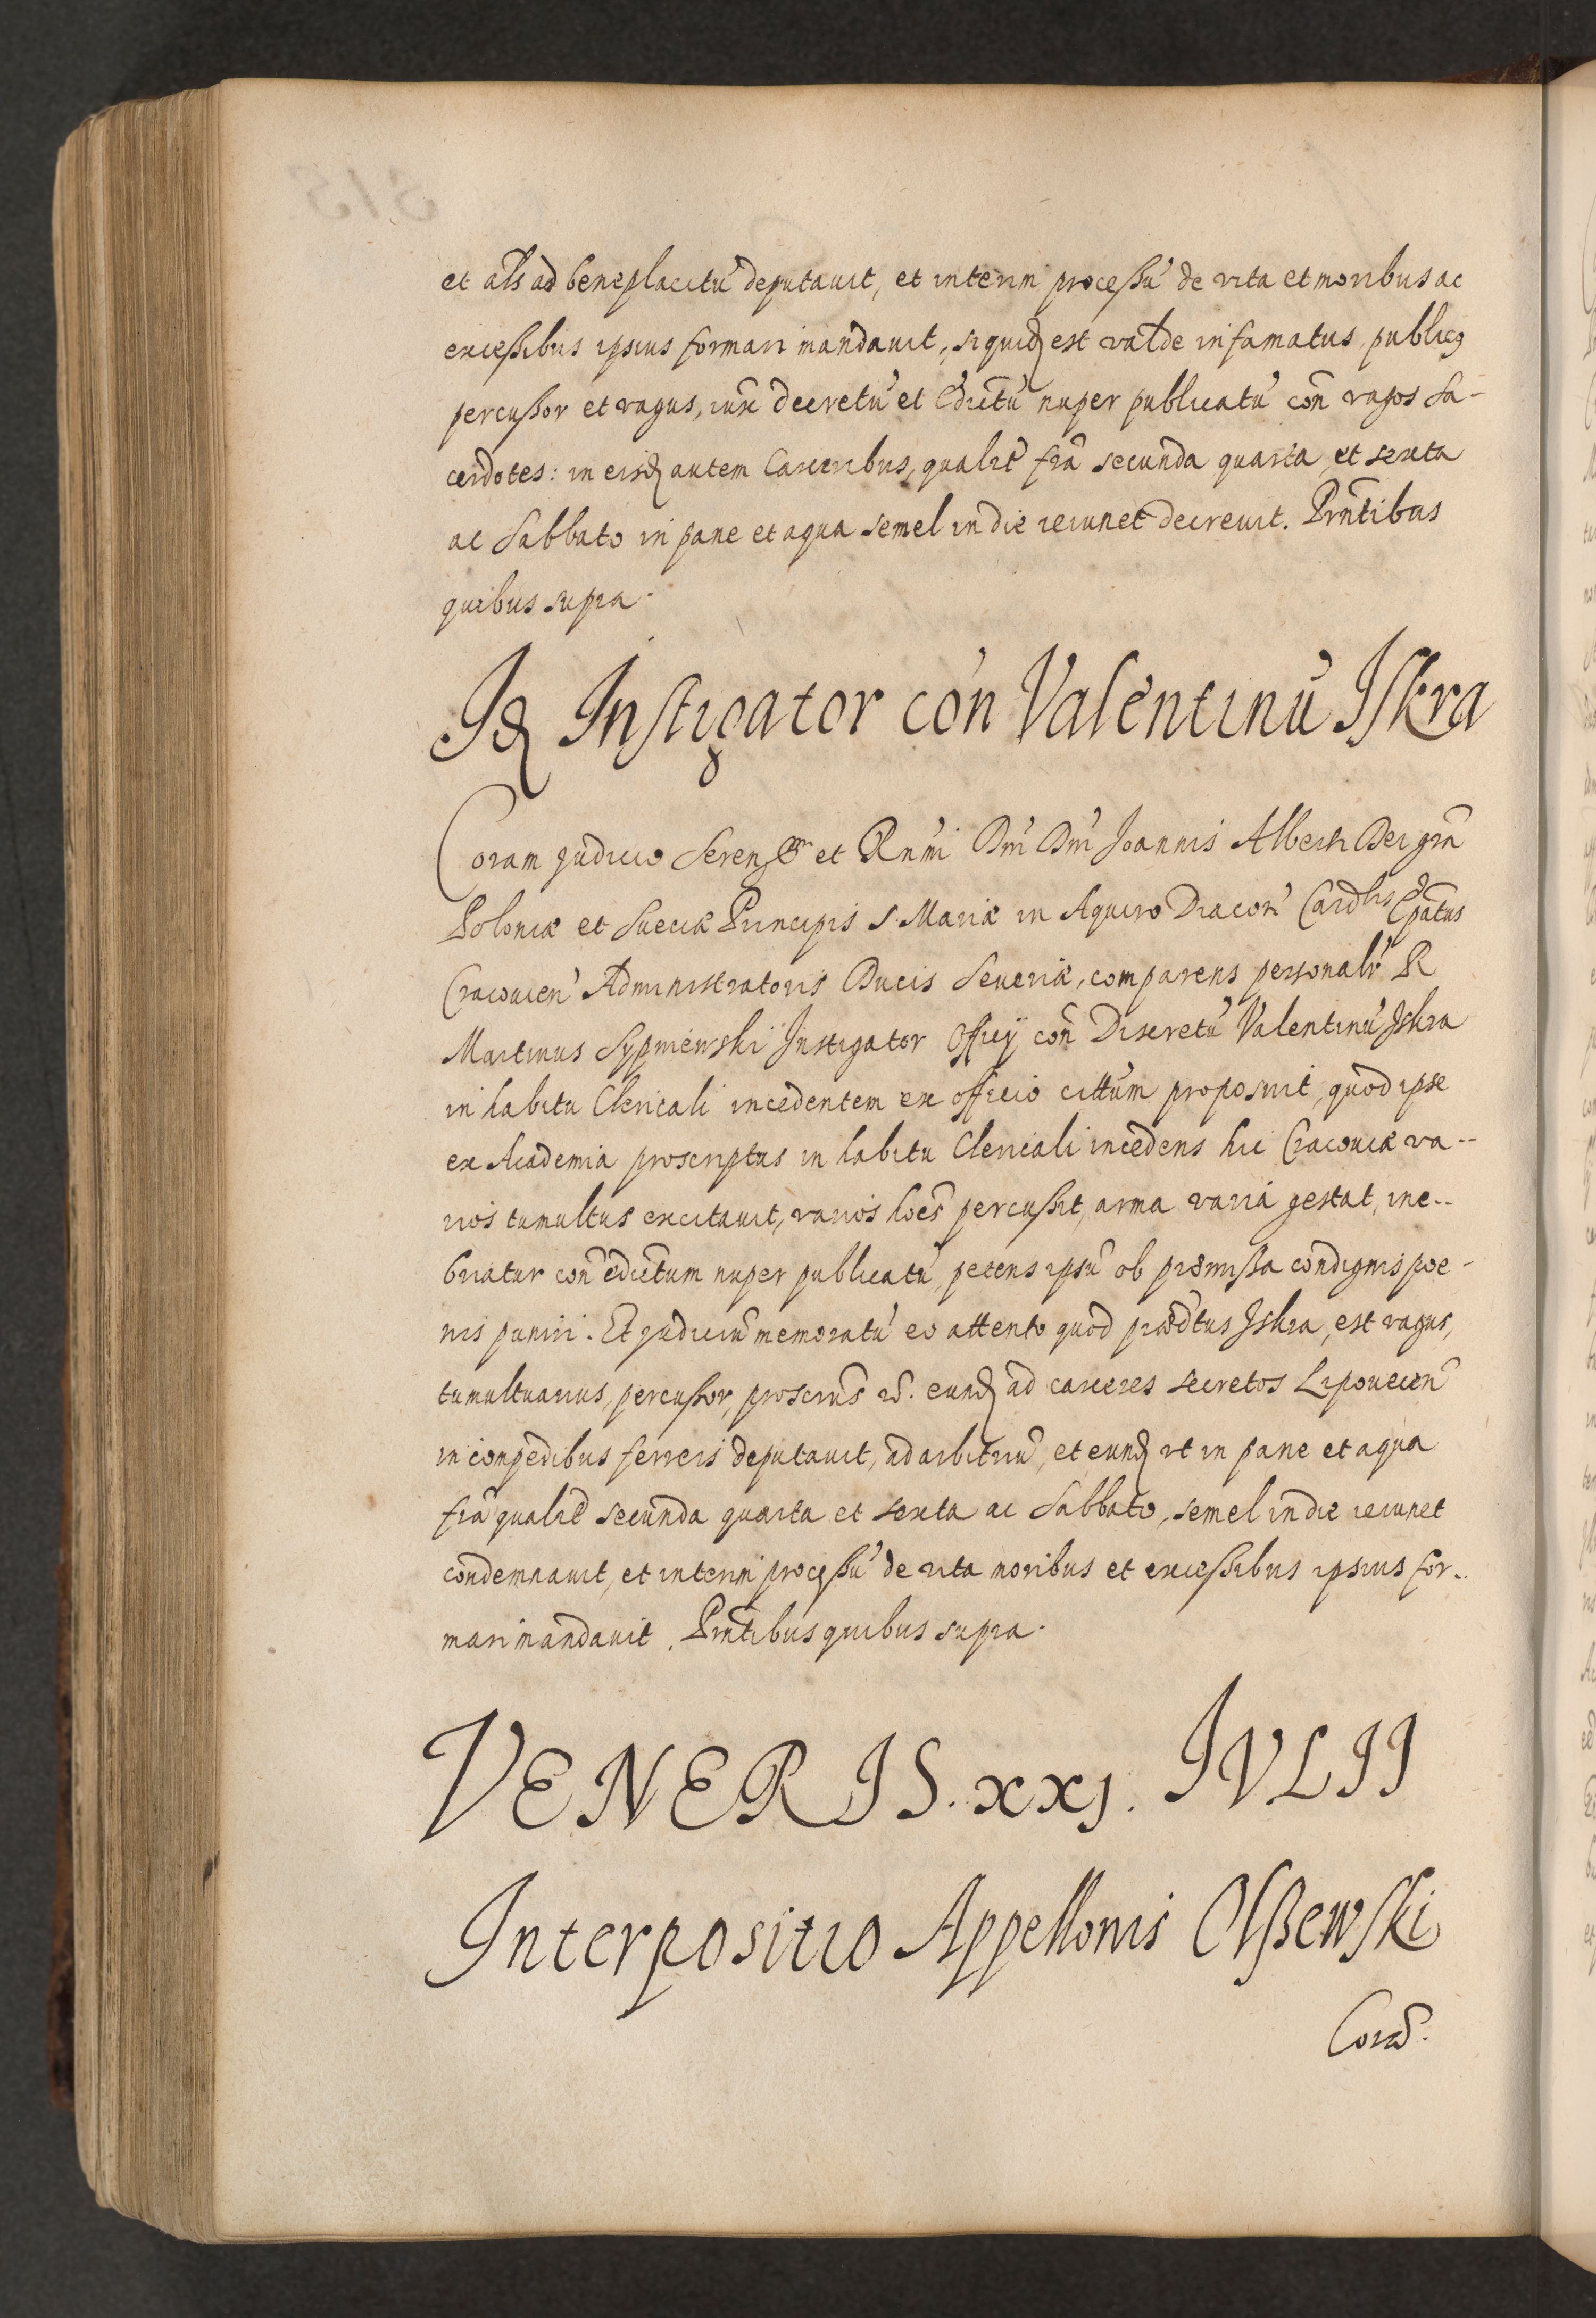 et als ad beneplacitũ deputauit, et interim proceßũ de vita et moribus ac
exceßibus ipsius formari mandauit, siquid est valde infamatus, publicq
percußor et vagus, iux decretũ et Edictũ nuper publicatũ con vagos Sa-
cerdotes: in eisd autem Carceribus, qualit fria secunda quarta et sexta
ac Sabbato in pane et aqua semel in die ieiunet decreuit. Prntibus
quibus supra.
Id Instigator con Valentinũ Iskra
Coram Judicio Seren et Rnmi Dni Dni Joannis Alberti Dei gra
Poloniæ et Sueciæ Principis S. Mariæ in Aquiro Diacon Cardlis Epatus
Cracouien Administratoris Ducis Seueriæ, comparens personalr R
Martinus Sypniewski Instigator Officij con Discretũ Valentinũ Iskra
in habitu Clericali incedentem ex officio cittum proposuit, quod ipse
ex Academia proscriptus in habitu Clericali incedens hic Cracouiæ va--
rios tumultus excitauit, varios hoes percußit, arma varia gestat, ine--
briatur con edictum nuper publicatũ, petens ipsũ ob præmißa condignis poe-
nis puniri. Et Judiciũ memoratũ eo attento quod prædtus Iskra, est vagus,
tumultuarius, percußor, proscrius id. eund ad carceres secretos Lipouecen
in conpedibus ferreis deputauit, ad arbitriũ, et eund vt in pane et aqua
fria qualit secunda quarta et sexta ac Sabbato, semel in die ieiunet
condemnauit, et interim proceßũ de vita moribus et exceßibus ipsius for..
mari mandauit. Prntibus quibus supra.
VENERIS. xxj. IVLII
Interpositio Appellonis Olßewski
Cora.